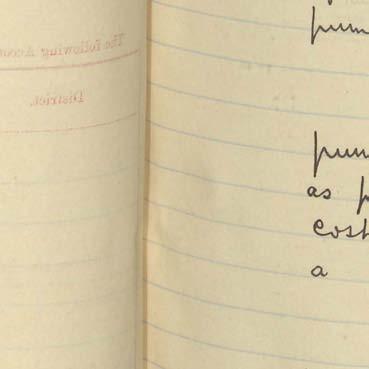 The following Accou
District.
pum
pum
as p
cost
a